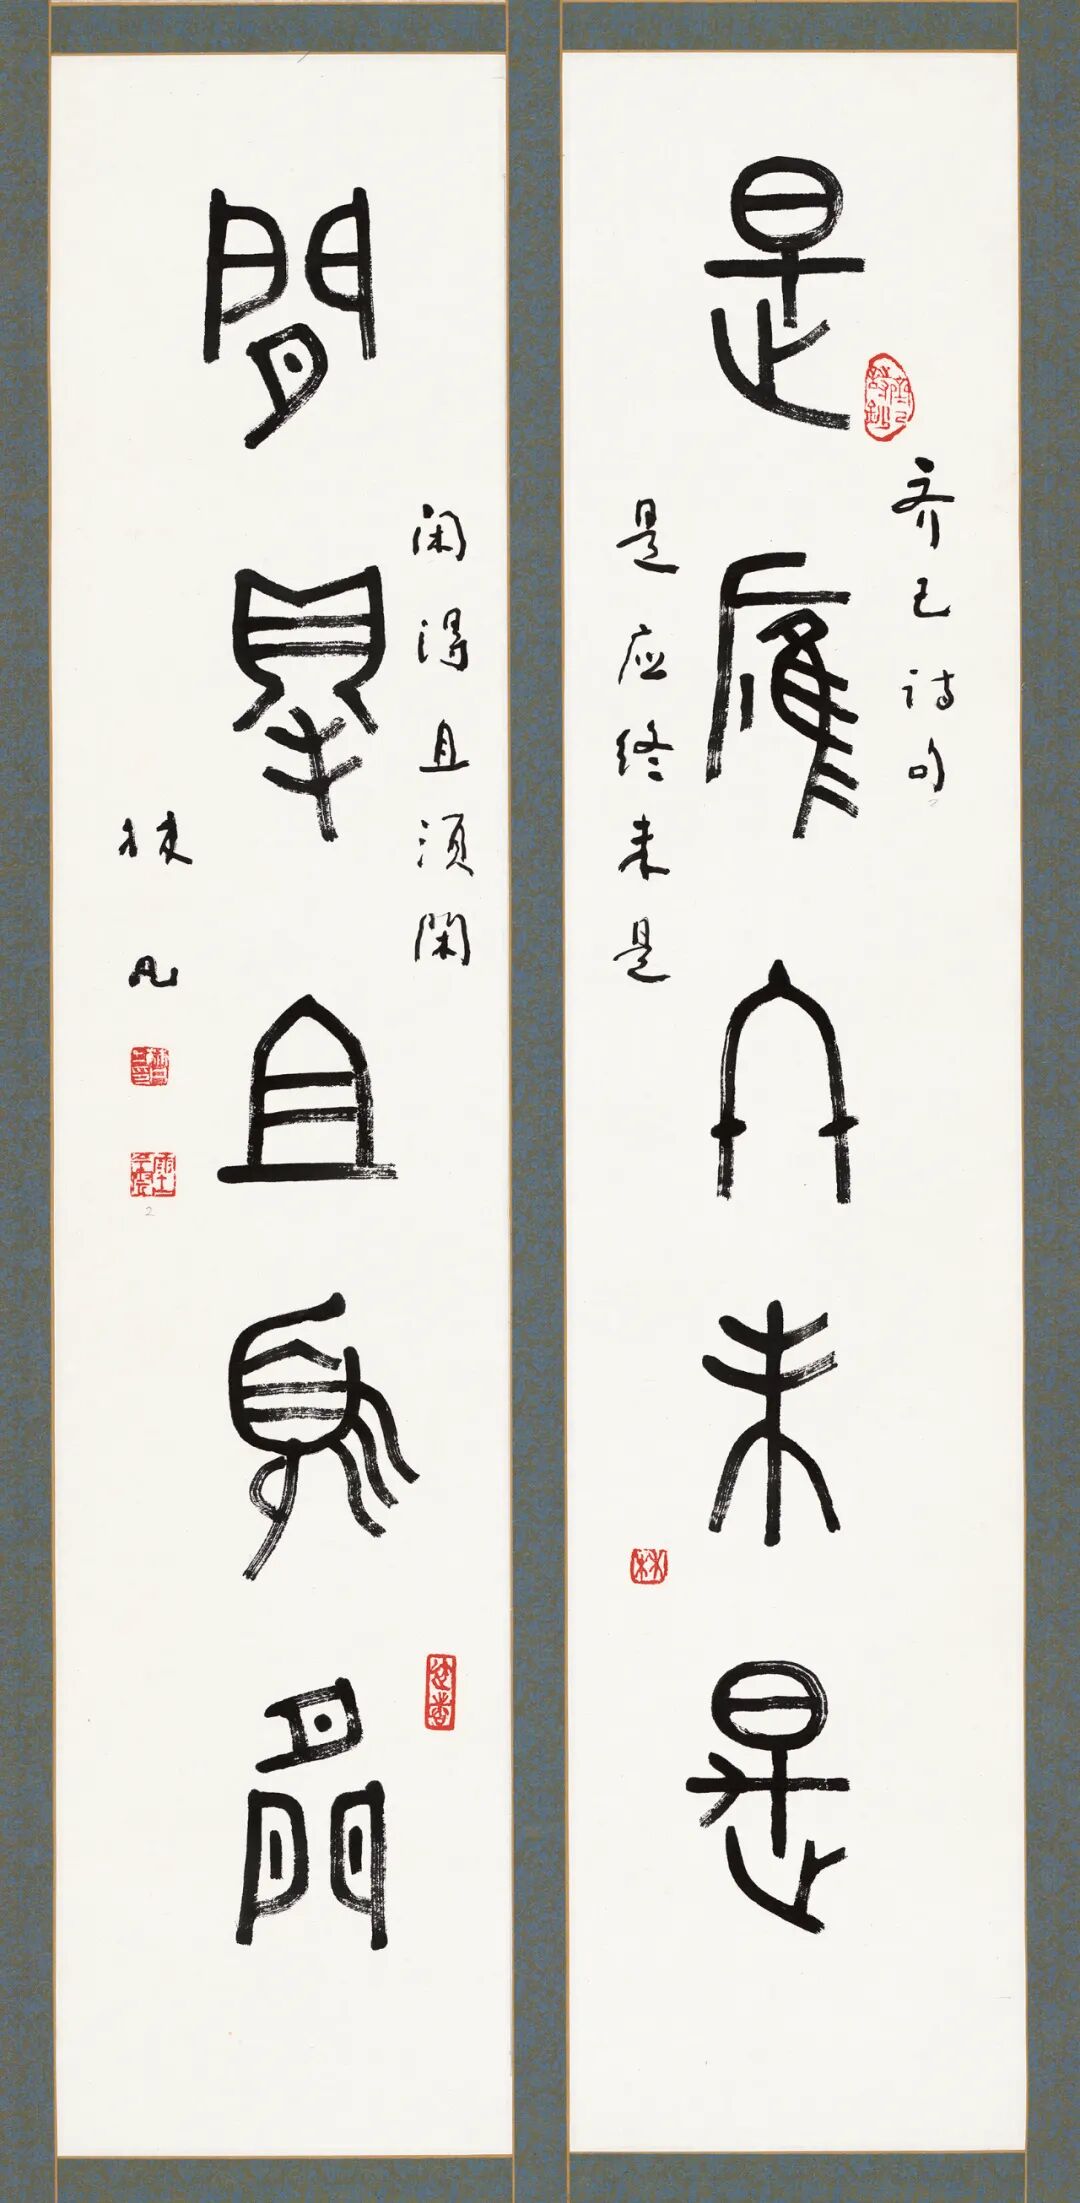 是應終未是
齐己诗句
是应终未是
閒得且須閒
闲得且须閑
扶凡